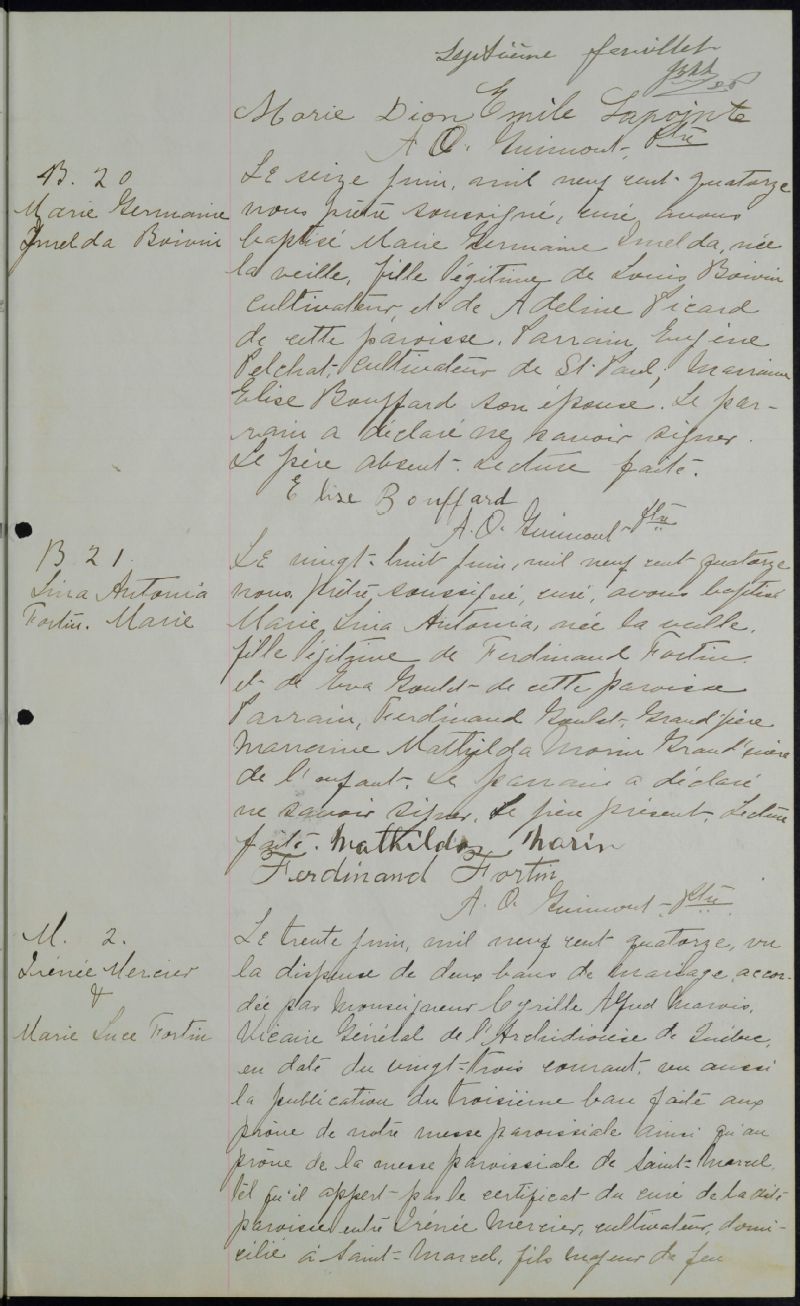 Septième feuillet
Marie Dion Emile Lapointe
A. O. Guimont, Ptre
B. 20
Marie Germaine
Imelda Boivin
Le seize juin, mil neuf cent quatorze
nous prêtre soussigné, curé, avons
baptisé Marie Germaine Imelda, née
la veille, fille légitime de Louis Boivin
cultivateur, et de Adeline Picard
de cette paroisse. Parrain, Eugène
Pelchat, cultivateur de St Paul, Marraine
Elise Bouffard son épouse. Le par-
rain a déclaré ne savoir signer.
Le père absent. Lecture faite.
Elise Bouffard
A. O. Guimont Ptre
B 21
Lina Antonia
Fortin. Marie
Le vingt-huit juin, mil neuf cent quatorze
nous, prêtre, soussigné, curé, avons baptisé
Marie, Lina Antonia, née la veille,
fille légitime de Ferdinand Fortin
et de Eva Goulet de cette paroisse
Parrain, Ferdinand Goulet, Grand'père
Marraine Mathilda Morin Grand'mère
de l'enfant. Le parrain a déclaré
ne savoir signer. Le père présent. Lecture
faite. Mathilda Morin
Ferdinand Fortin
A. O. Guimont Ptre
M. 2.
Irénée Mercier
&
Marie Luce Fortin
Le trente juin, mil neuf cent quatorze, vu
la dispense de deux bans de mariage accor-
dée par Monseigneur Cyrille Alfred Marois,
Vicaire Général de l'Archidiocèse de Québec,
en date du vingt-trois courant, vu aussi
la publication du troisième ban faite aux
prône de notre messe paroissiale ainsi qu'au
prône de la messe paroissiale de Saint-Marcel,
tel qu'il appert par le certificat du curé de la dite
paroisse entre Irénée Mercier, cultivateur, domi-
cilié à Saint-Marcel, fils majeur de feu